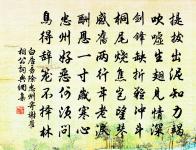 提拔出泥知力竭
吹噓生翅見情深
劍鋒缺折難衝斗
桐尾燒焦豈望琴
感舊兩行年老淚
酬恩一寸歲寒心
忠州好惡何須問
鳥得辭籠不擇林
白居易除忠州寄謝崔
相公詞典網集